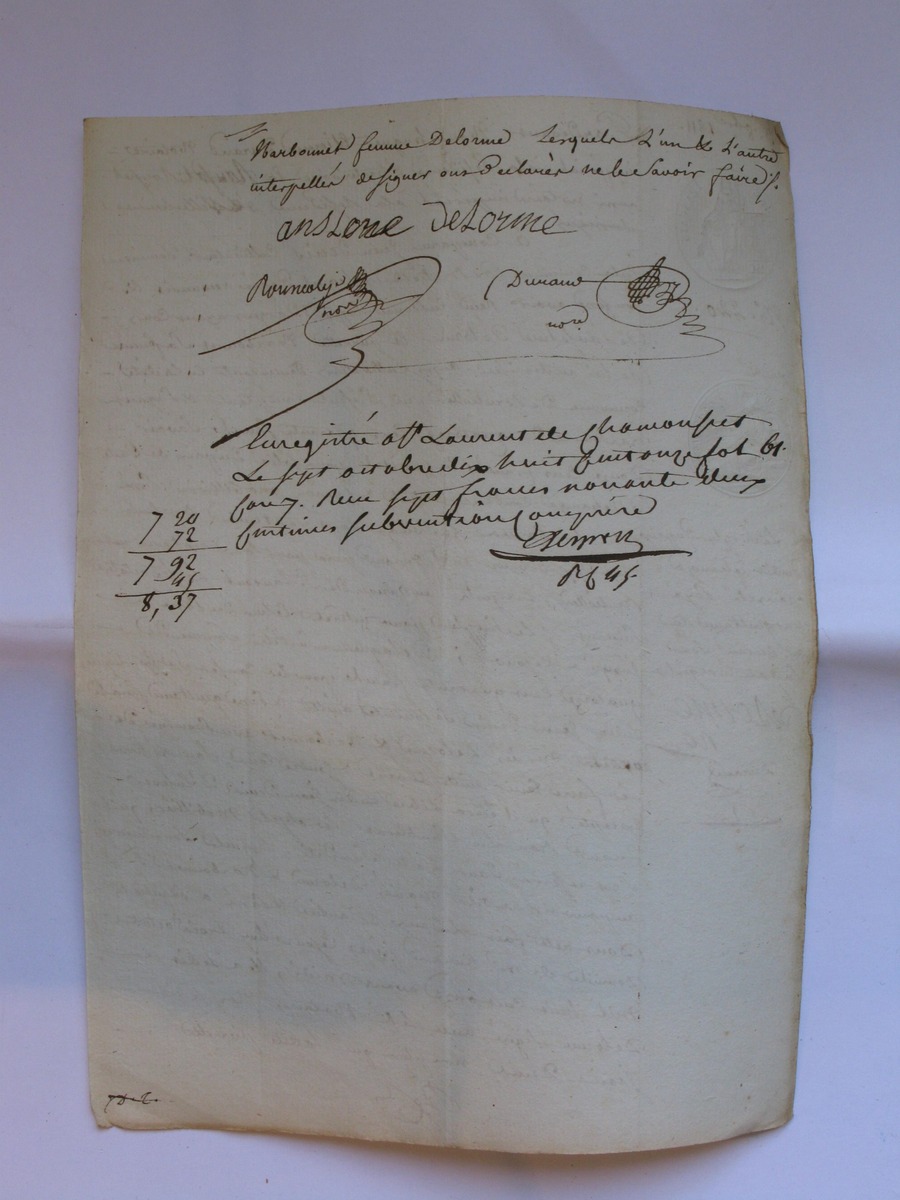 Narbonnet femme Delorme Lesquels L'un & L'autre
interpellés designer ons Declarés ne le Savoir faire ./.
ansLone Delorme
Durand
not
nore
Enregistré a St Laurent de Chamousset
Le sept octobre dix huit cent onze fol 61.
Case 7. Recu sept francs nonante deux
centimes subvention Comprise
7 20
72
7 92
45
8, 37